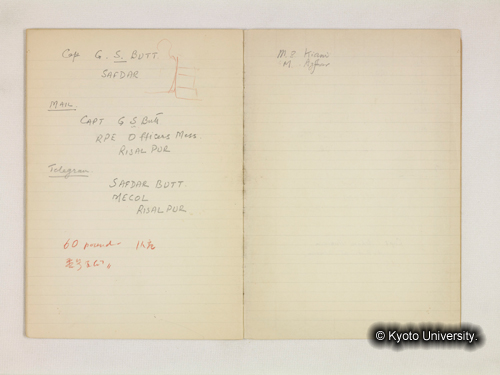 Capt G. S. BUTT
SAFDAR
MAIL.
CAPT G S Butt.
RPE Officers Mess.
RISALPUR
Telegram.
SAFDAR BUTT.
MECOL
RISALPUR.
60 pound
M.
M.
© Kyoto University.